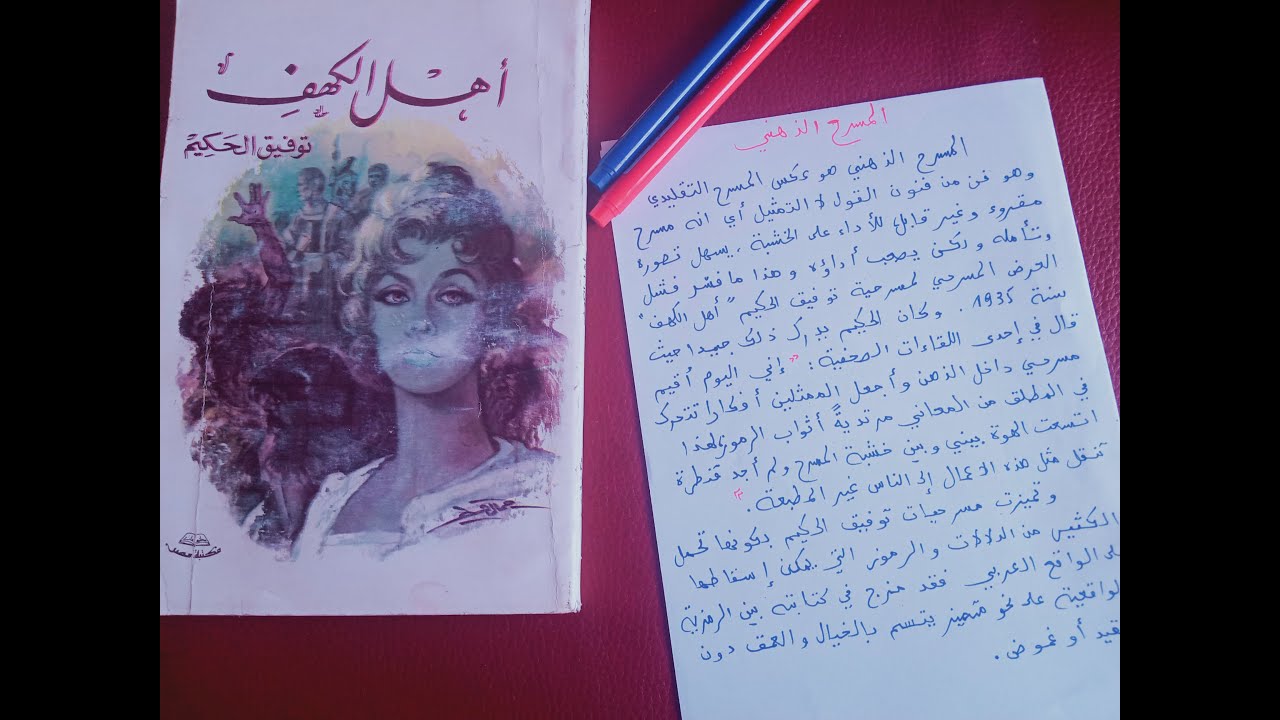 أهل الكهف
توفيق الحكيم
مكتبة مصر
المسرح الذهني
المسرح الذهني هو عكس المسرح التقليدي
وهو فن من فنون القول لا التمثيل أي انه مسرح
مقروء وغير قابل للأداء على الخشبة، يسهل تصوره
وتأمله ولكن يصعب أداؤه وهذا ما فسّر فشل
العرض المسرحي لمسرحية توفيق الحكيم "أهل الكهف"
سنة 1935. وكان الحكيم يدرك ذلك جيدا حيث
قال في إحدى اللقاءات الصحفية: "إني اليوم أقيم
مسرحي داخل الذهن وأجعل الممثلين أفكارا تتحرك
في المطلق من المعاني مرتديةً أثواب الرموز لهذا
اتسعت الهوة بيني وبين خشبة المسرح ولم أجد قنطرة
تنقل مثل هذه الأعمال إلى الناس غير المطبعة."
وتميزت مسرحيات توفيق الحكيم بكونها تحمل
الكثير من الدلالات والرموز التي يمكن إسقاطها
على الواقع العربي فقد مزج في كتابته بين الرمزية
واقعية على نحو متميز يتسم بالخيال والعمق دون
قيد أو غموض.